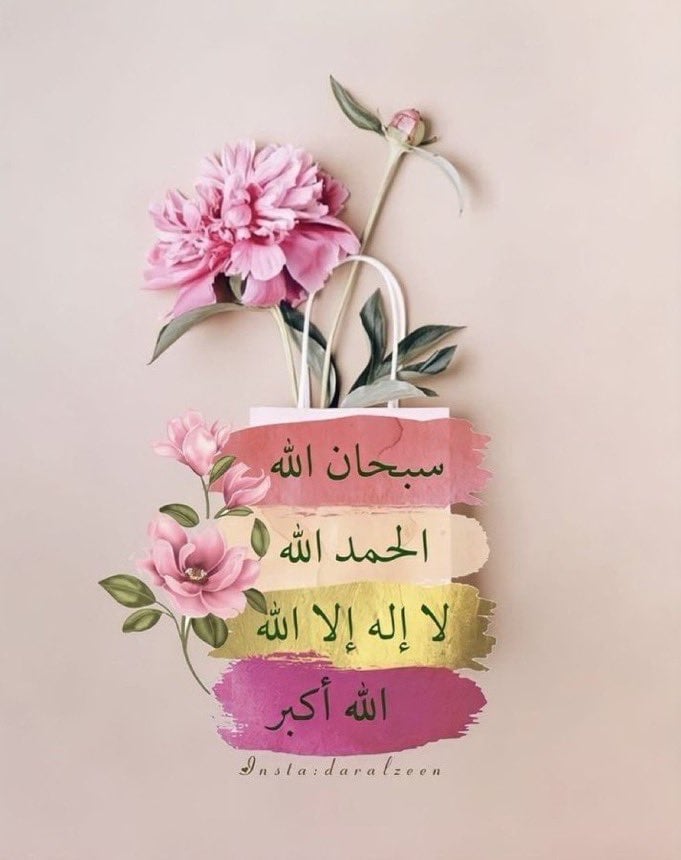 سبحان الله
الحمد الله
لا إله إلا الله
الله أكبر
Insta:daralzeen